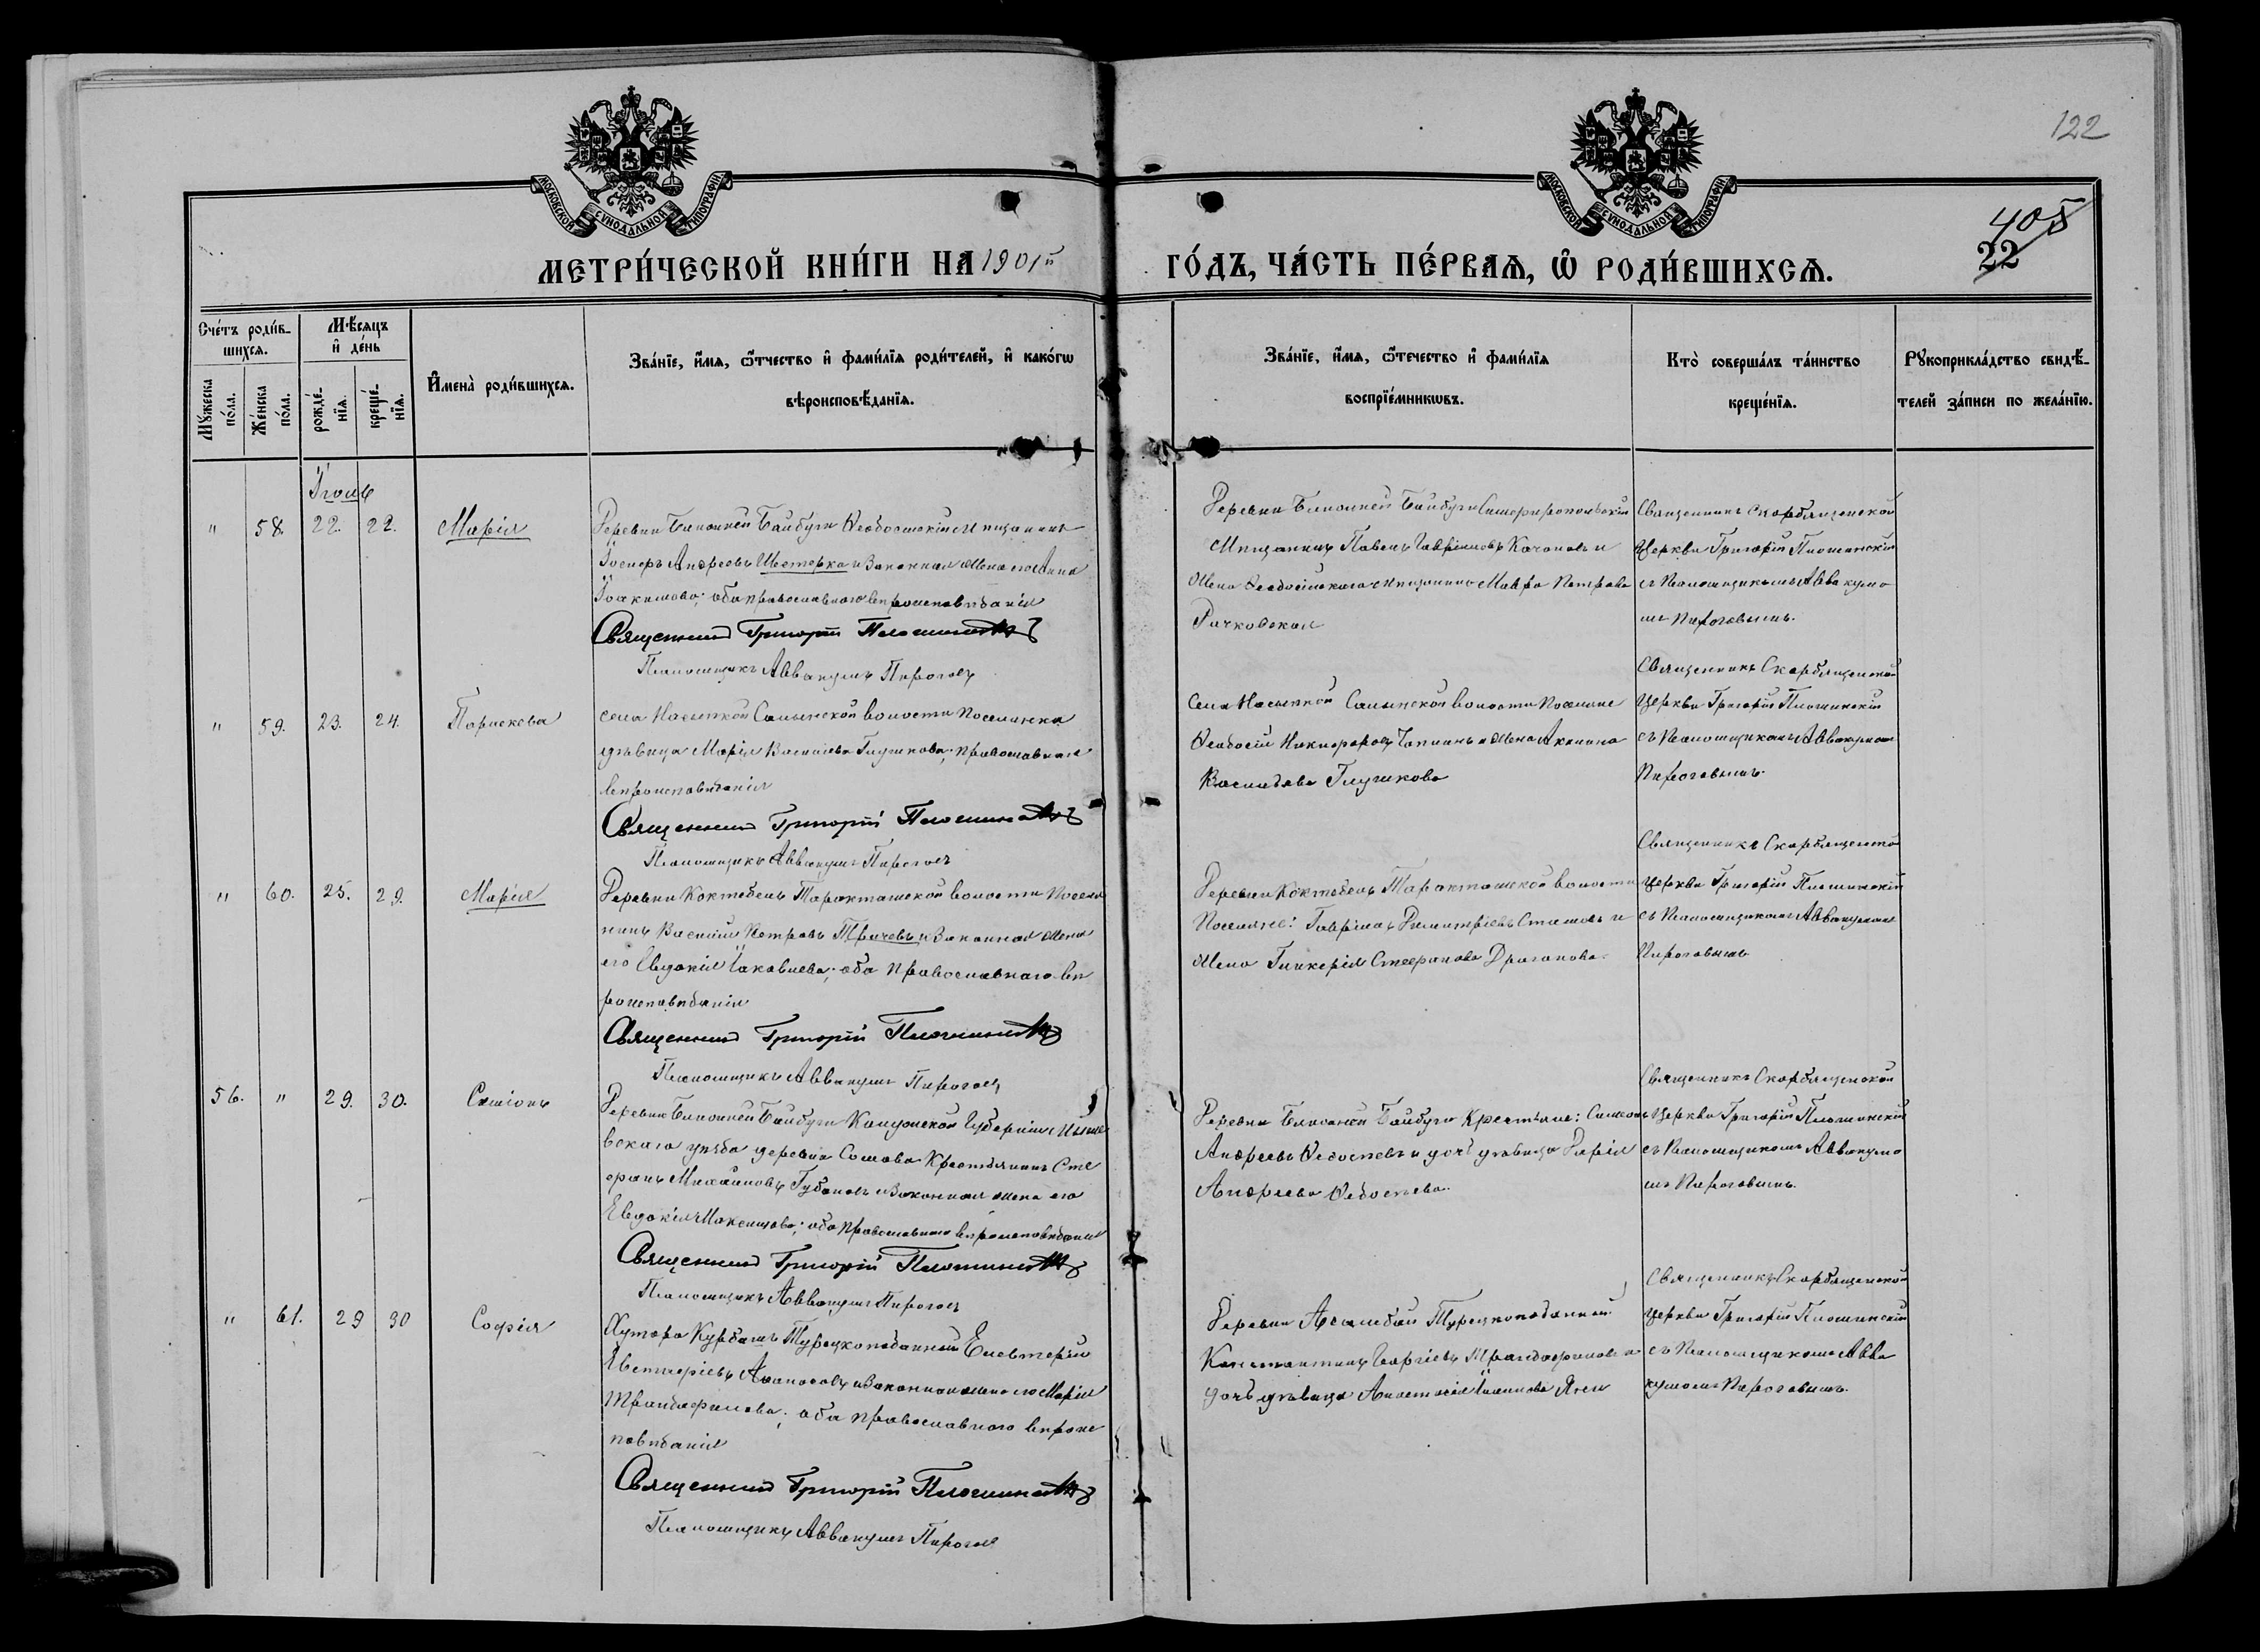 122
405
22
МОСКОВСКОЙ СѴНОДАЛЬНОЙ ТИПОГРАФІИ
МОСКОВСКОЙ СѴНОДАЛЬНОЙ ТИПОГРАФІИ
МЕТРИ́ЧЕСКОЙ КНИ́ГИ НА 1901й ГО́ДЪ, ЧА́СТЬ ПЕ́РВАѦ, Ѡ҆ РОДИ́ВШИХСѦ.
Сче́тъ роди́в-
шихсѧ.
Мѣ́сѧцъ
и҆ де́нь
И҆мена̀ роди́вшихсѧ.
Зва́нїе, и҆́мѧ, ѻ҆́тчество и҆ фами́лїѧ роди́телей, и҆ како́гѡ
вѣроисповѣ́данїѧ.
Зва́нїе, и҆́мѧ, ѻ҆те́чество и҆ фами́лїѧ
воспрїе́мникѡвъ.
Кто̀ соверша́лъ та́инство
креще́нїѧ.
Рꙋкоприкла́дство свидѣ́-
телей за́писи по жела́нїю.
Мꙋ́жеска
по́ла.
Же́нска
по́ла.
рожде́-
нїѧ.
креще́-
нїѧ.
Іюль
" 58. 22. 22. Марія
Деревни Ближней Байбуги Ѳеодосійскій Мѣщанинъ
Іосифъ Андреевъ Шестерка и законная жена его Анна
Іоакимова; оба православнаго вѣроисповѣданія
Священникъ Григорій Плошинскій
Псаломщикъ Аввакумъ Пироговъ
Деревни Ближней Байбуги Симферопольскій
Мѣщанинъ Павелъ Гавріиловъ Качановъ и
жена Ѳеодосійскаго мѣщанина Мавра Петрова
Рачковская
Священникъ Скорбященской
Церкви Григорій Плошинскій
съ Псаломщикомъ Аввакумо
мъ Пироговымъ.
" 59. 23. 24. Параскева
села Насыпкой Салынской волости Поселянка
дѣвица Марія Васильева Глушкова; православнаго
вѣроисповѣданія
Священникъ Григорій Плошинскій
Псаломщикъ Аввакумъ Пироговъ
Села Насыпкой Салынской волости Поселяне
Ѳеодосій Никифоровъ и жена Акилина
Васильева Глушкова
Священникъ Скорбященской
Церкви Григорій Плошинскій
съ Псаломщикомъ Аввакумомъ
Пироговымъ.
" 60. 25. 29. Марія
Деревни Коктебель Таракташской волости Поселя
нинъ Василій Петровъ Трачевъ и законная жена
его Евдокія Іаковлева; оба православнаго вѣ
роисповѣданія
Священникъ Григорій Плошинскій
Псаломщикъ Аввакумъ Пироговъ
Деревни Коктебель Таракташской волости
Поселяне: Гавріилъ Димитріевъ Стамовъ и
жена Гликерія Стефанова Драганова.
Священникъ Скорбященской
Церкви Григорій Плошинскій
съ Псаломщикомъ Аввакумомъ
Пироговымъ
56. " 29. 30. Симіонъ
Деревни Ближней Байбуги Калужской Губерніи
уѣзда деревни Сомова Крестьянинъ Сте
фанъ Михайловъ Губановъ и законная жена его
Евдокія Максимова; оба православнаго вѣроисповѣданія
Священникъ Григорій Плошинскій
Псаломщикъ Аввакумъ Пироговъ
Деревни Ближней Байбуги Крестьяне: Симеонъ
Андреевъ Ѳедосѣевъ и дочь дѣвица Дарія
Андреева Ѳедосѣева.
Священникъ Скорбященской
Церкви Григорій Плошинскій
съ Псаломщикомъ Аввакумо
мъ Пироговымъ.
" 61. 29 30 Софія
Хутора Курбашъ Турецкоподанный Елевтерій
Аѳанасовъ и законная жена его Марія
Трандафилова; оба православнаго вѣроис
повѣданія
Священникъ Григорій Плошинскій
Псаломщикъ Аввакумъ Пироговъ
Деревни Турецкоподанный
Константинъ Георгіевъ Трандафиловъ и
дочь дѣвица Анастасія
Священникъ Скорбященской
Церкви Григорій Плошинскій
съ Псаломщикомъ Авва
кумомъ Пироговымъ.